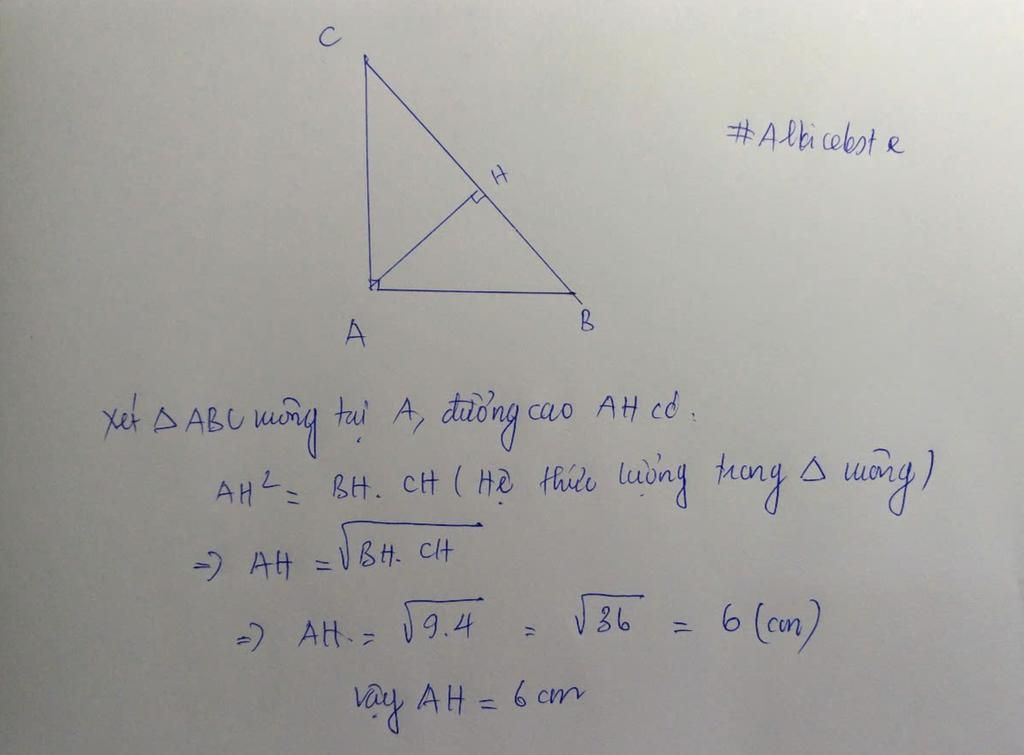 C
#Albiceleste
H
A
B
Xét Δ ABC vuông tại A, đường cao AH có:
AH² = BH. CH (Hệ thức lượng trong Δ vuông)
=> AH = √BH. CH
=> AH = √9.4 = √36 = 6 (cm)
vậy AH = 6 cm